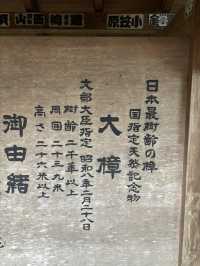 小笠原
日本最樹齢の樟
国指定天然記念物
大樟
文部大臣指定 昭和八年二月二十八日
樹齢 二千年以上
周囲 二十三、九米
高さ 二十六米以上
御由緒